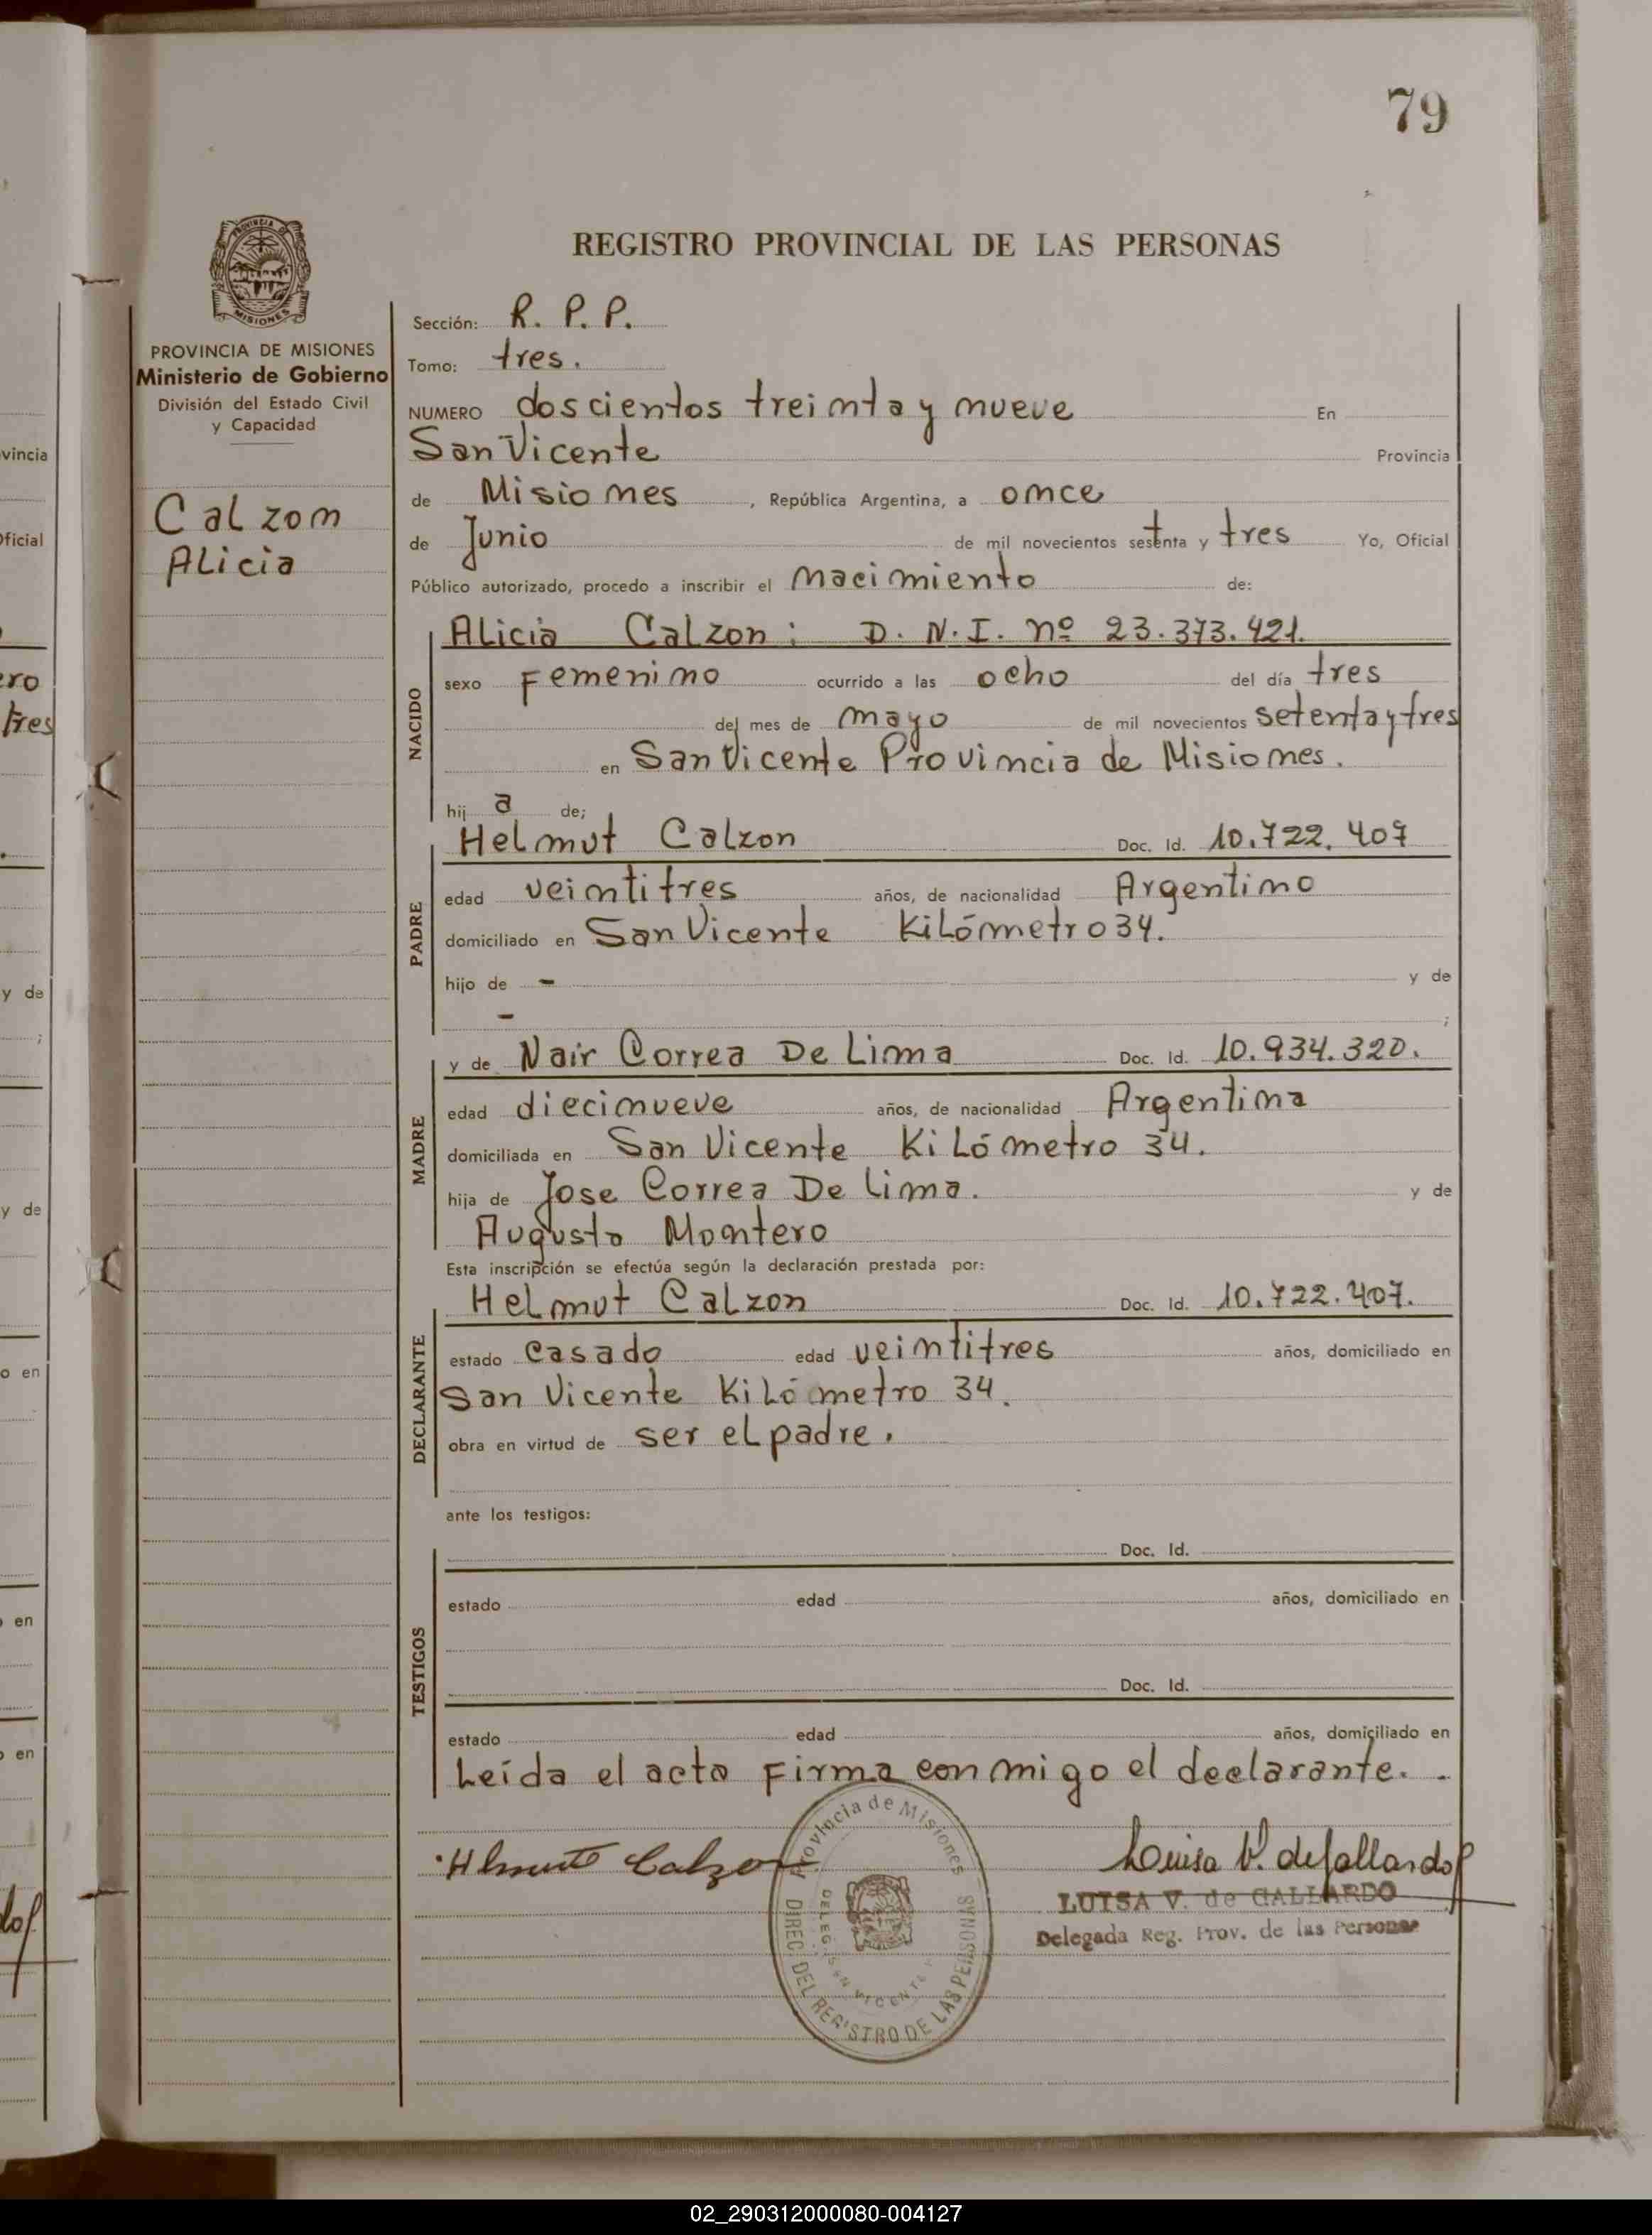 79
PROVINCIA DE
MISIONES
PROVINCIA DE MISIONES
Ministerio de Gobierno
División del Estado Civil
y Capacidad
Calzon
Alicia
REGISTRO PROVINCIAL DE LAS PERSONAS
Sección: R. P. P.
Tomo: tres.
NUMERO doscientos treinta y nueve En
San Vicente Provincia
de Misiones, República Argentina, a once
de Junio de mil novecientos setenta y tres Yo, Oficial
Público autorizado, procedo a inscribir el nacimiento de:
NACIDO
Alicia Calzon: D. N. I. nº 23.373.421.
sexo Femenino ocurrido a las ocho del día tres
del mes de mayo de mil novecientos setenta y tres
en San Vicente Provincia de Misiones.
hij a de;
PADRE
Helmut Calzon Doc. Id. 10.722.407
edad veintitres años, de nacionalidad Argentino
domiciliado en San Vicente Kilómetro 34.
hijo de - y de
- ;
MADRE
y de Nair Correa De Lima Doc. Id. 10.934.320.
edad diecinueve años, de nacionalidad Argentina
domiciliada en San Vicente Kilómetro 34.
hija de Jose Correa De Lima. y de
Augusta Montero
Esta inscripción se efectúa según la declaración prestada por:
DECLARANTE
Helmut Calzon Doc. Id. 10.722.407.
estado casado edad veintitres años, domiciliado en
San Vicente Kilómetro 34.
obra en virtud de ser el padre.
ante los testigos:
TESTIGOS
Doc. Id.
estado edad años, domiciliado en
Doc. Id.
estado edad años, domiciliado en
Leída el acta Firma conmigo el declarante. .
Calzon
Luisa V. de Gallardo
LUISA V. de GALLARDO
Delegada Reg. Prov. de las Personas
Provincia de Misiones
DIREC. DEL REGISTRO DE LAS PERSONAS
DELEG. SAN VICENTE
vincia
Oficial
ero
tres
y de
;
y de
o en
en
en
02_290312000080-004127